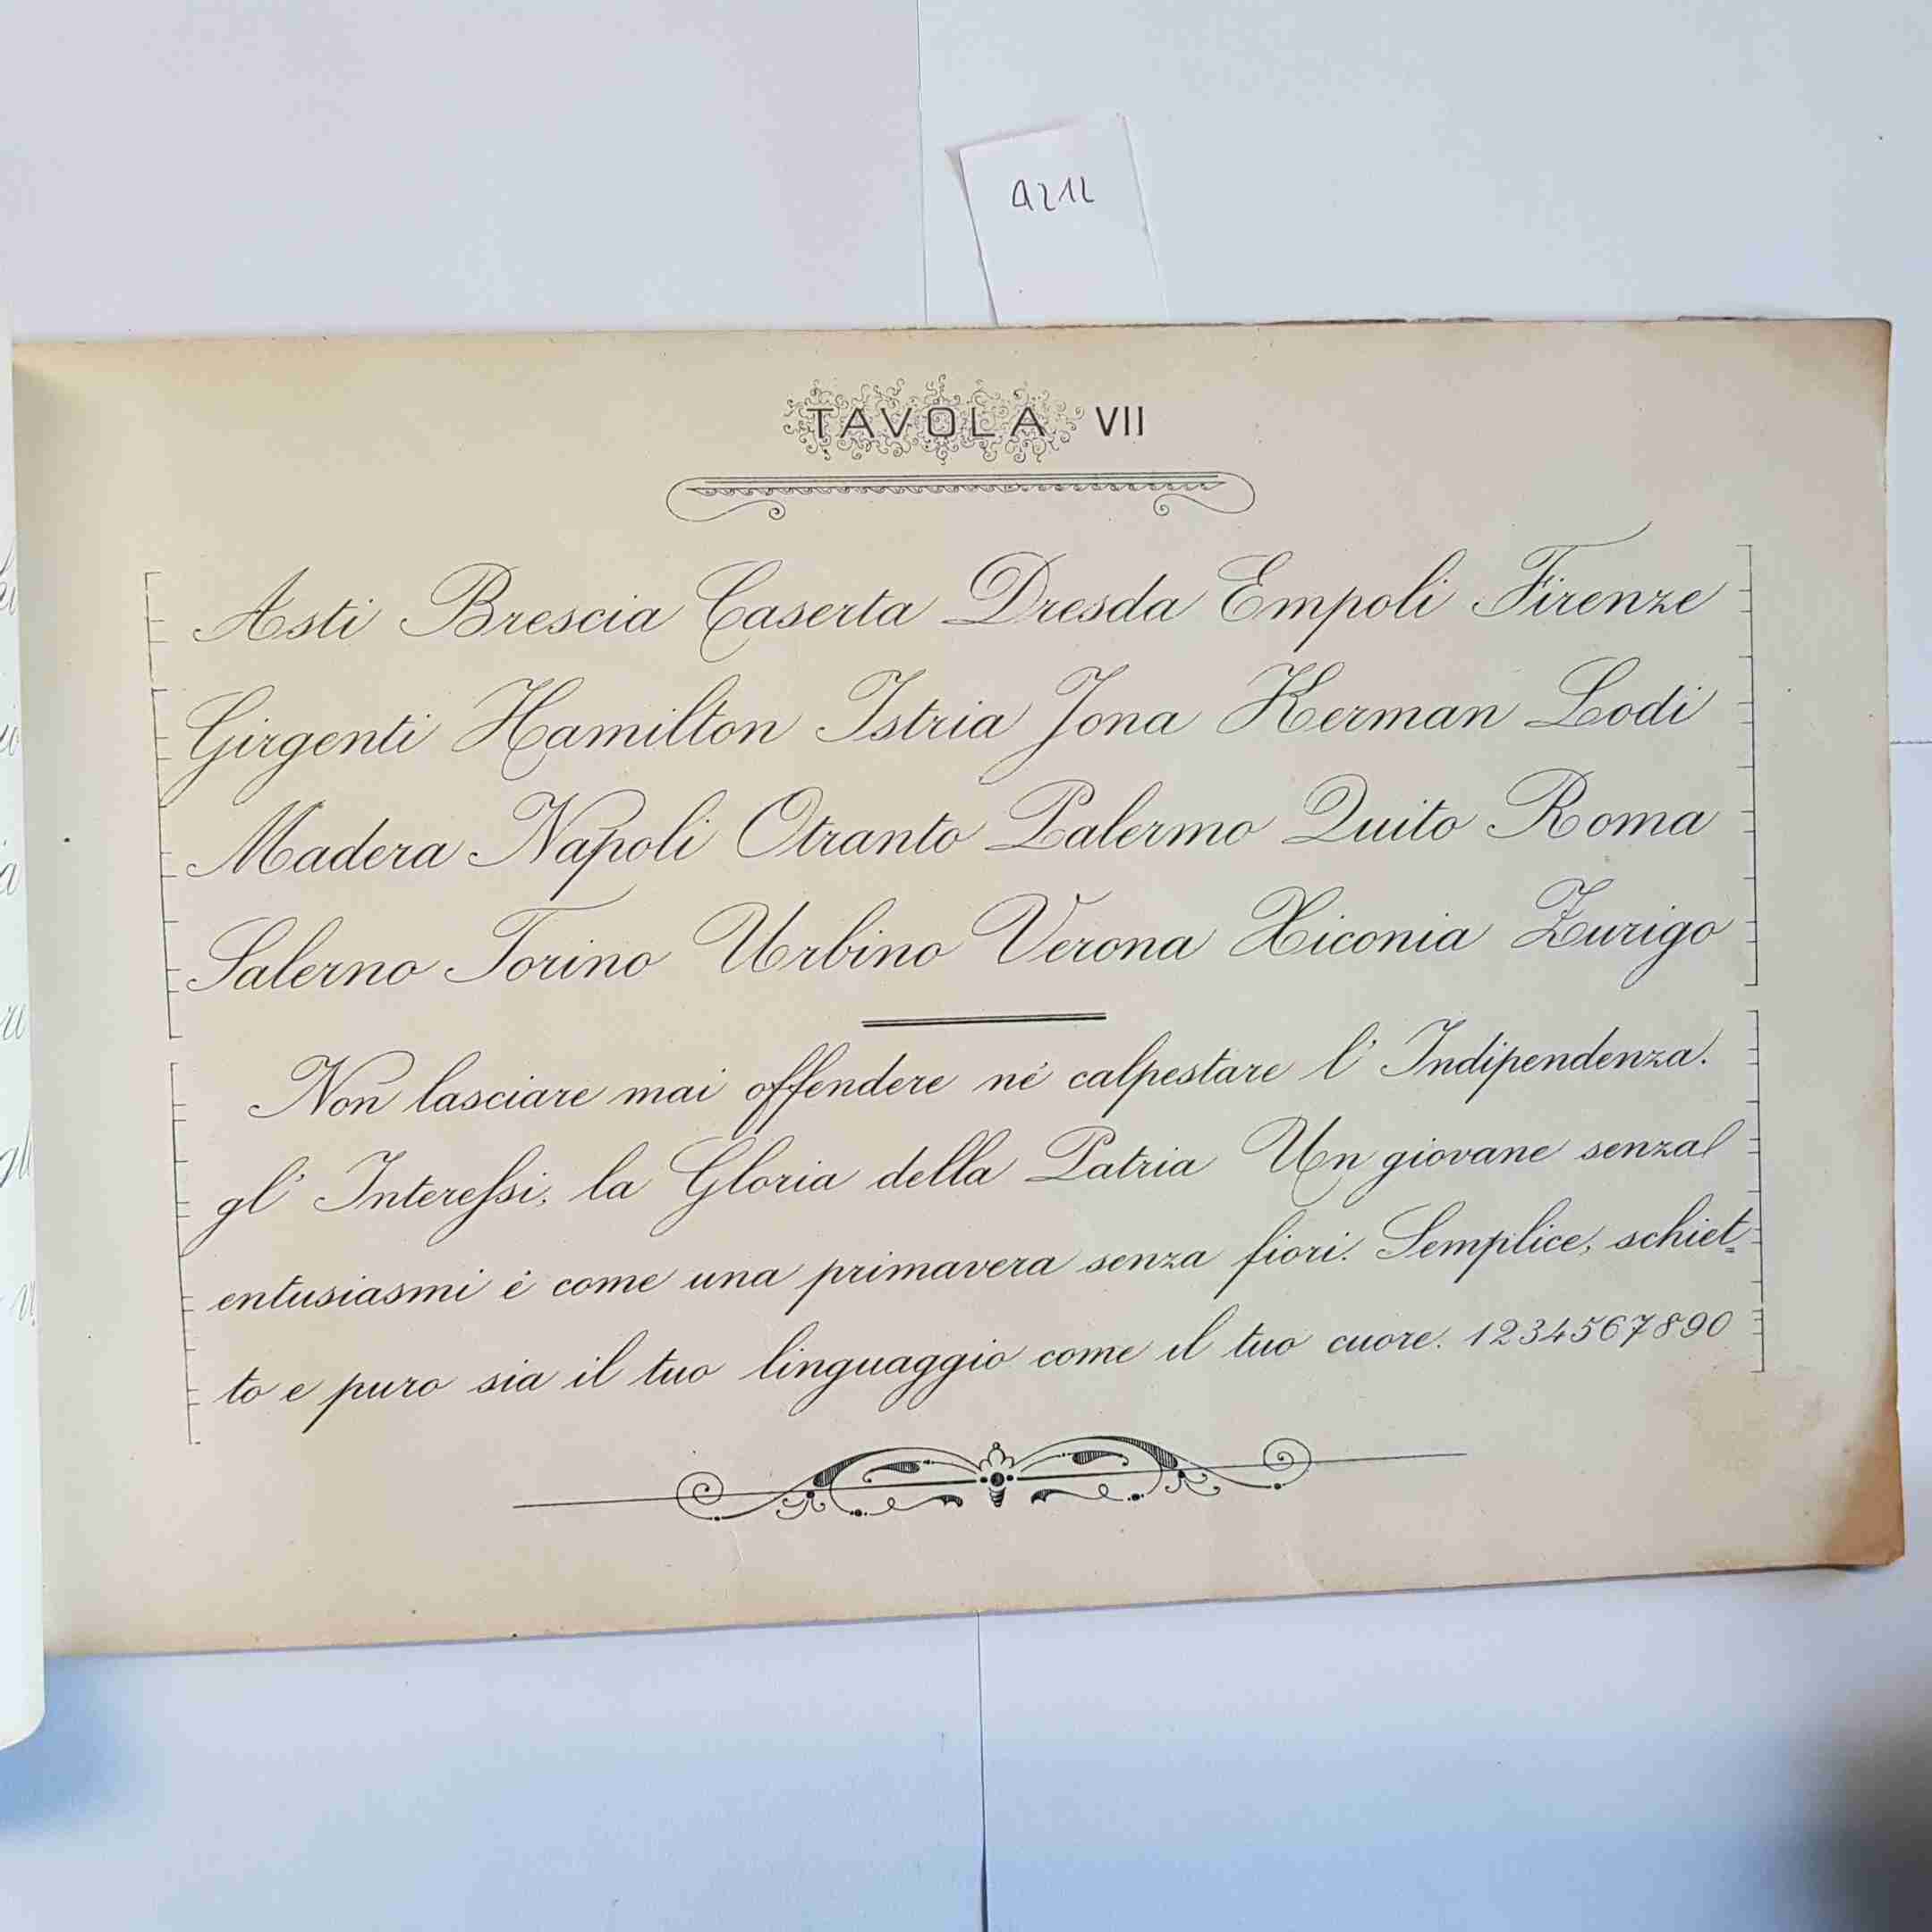 a212
TAVOLA VII
Asti Brescia Caserta Dresda Empoli Firenze
Girgenti Hamilton Istria Jona Kerman Lodi
Madera Napoli Otranto Palermo Quito Roma
Salerno Torino Urbino Verona Xiconia Zurigo
Non lasciare mai offendere nè calpestare l' Indipendenza.
gl' Interessi, la Gloria della Patria Un giovane senza
entusiasmi è come una primavera senza fiori. Semplice, schiet=
to e puro sia il tuo linguaggio come il tuo cuore. 1234567890